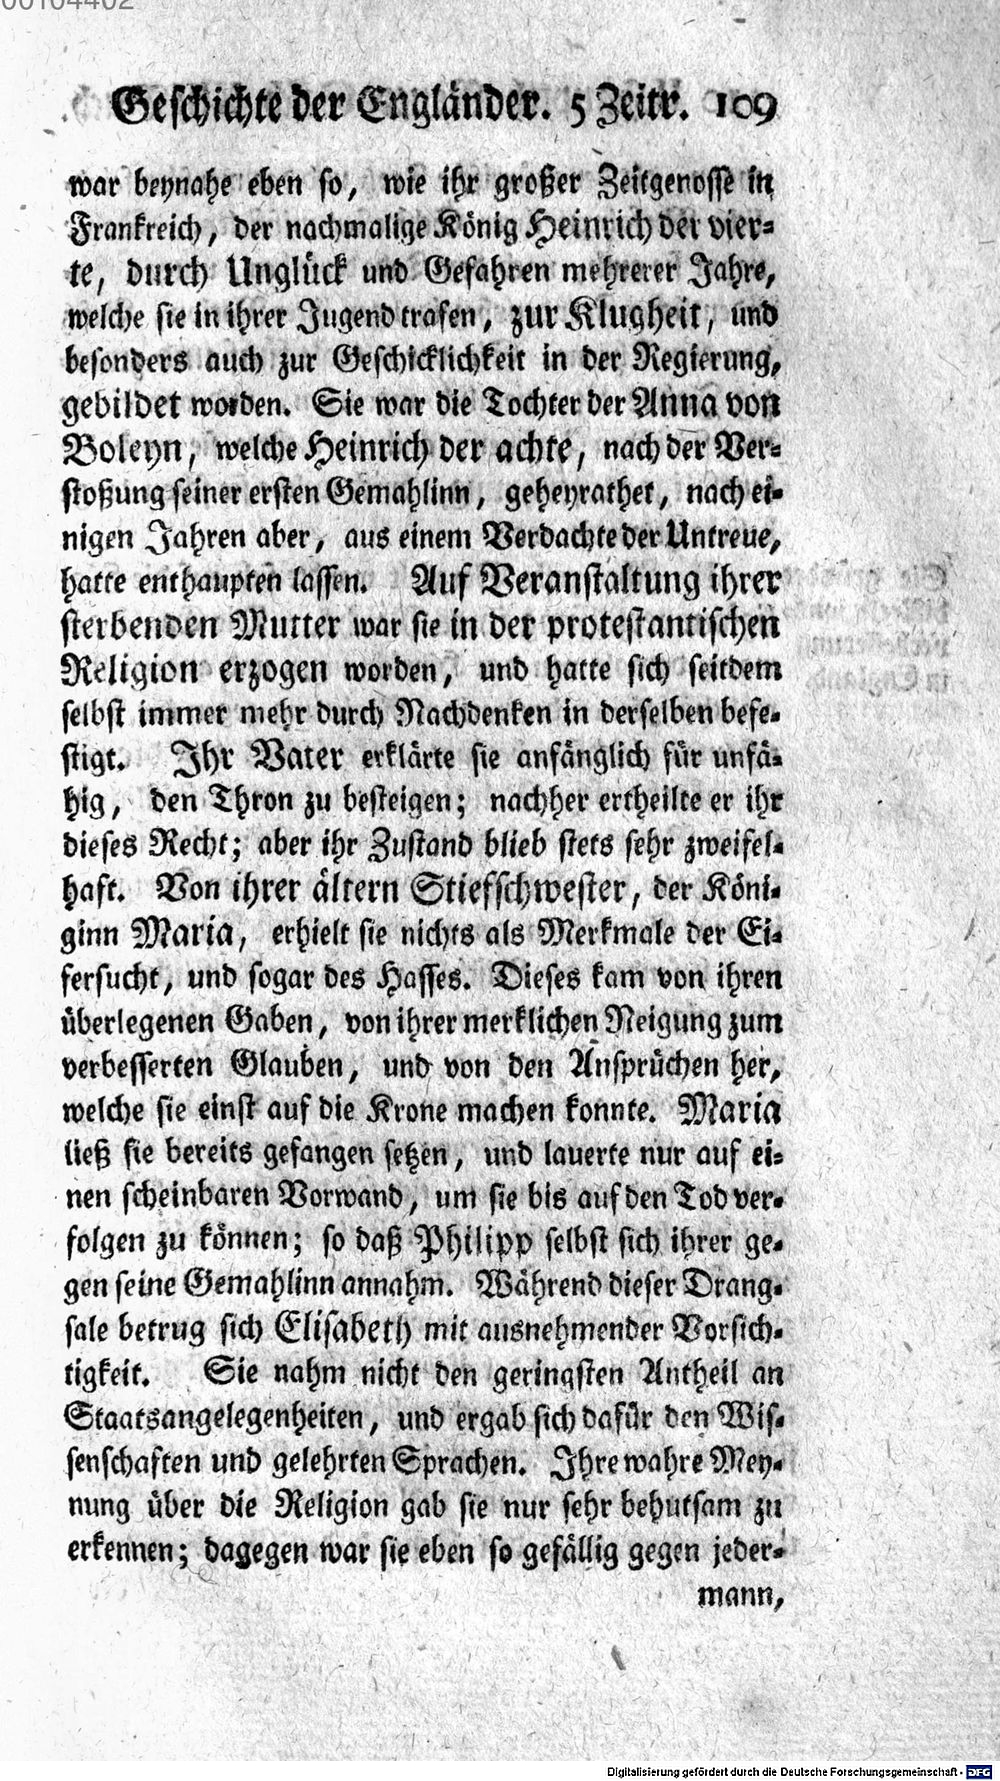 00104402
Geschichte der Engländer. 5 Zeitr. 109
war beynahe eben so, wie ihr großer Zeitgenosse in
Frankreich, der nachmalige König Heinrich der vier-
te, durch Unglück und Gefahren mehrerer Jahre,
welche sie in ihrer Jugend trafen, zur Klugheit, und
besonders auch zur Geschicklichkeit in der Regierung,
gebildet worden. Sie war die Tochter der Anna von
Boleyn, welche Heinrich der achte, nach der Ver-
stoßung seiner ersten Gemahlinn, geheyrathet, nach ei-
nigen Jahren aber, aus einem Verdachte der Untreue,
hatte enthaupten lassen. Auf Veranstaltung ihrer
sterbenden Mutter war sie in der protestantischen
Religion erzogen worden, und hatte sich seitdem
selbst immer mehr durch Nachdenken in derselben befe-
stigt. Ihr Vater erklärte sie anfänglich für unfä-
hig, den Thron zu besteigen; nachher ertheilte er ihr
dieses Recht; aber ihr Zustand blieb stets sehr zweifel-
haft. Von ihrer ältern Stiefschwester, der Köni-
ginn Maria, erhielt sie nichts als Merkmale der Ei-
fersucht, und sogar des Hasses. Dieses kam von ihren
überlegenen Gaben, von ihrer merklichen Neigung zum
verbesserten Glauben, und von den Ansprüchen her,
welche sie einst auf die Krone machen konnte. Maria
ließ sie bereits gefangen setzen, und lauerte nur auf ei-
nen scheinbaren Vorwand, um sie bis auf den Tod ver-
folgen zu können; so daß Philipp selbst sich ihrer ge-
gen seine Gemahlinn annahm. Während dieser Drang-
sale betrug sich Elisabeth mit ausnehmender Vorsich-
tigkeit. Sie nahm nicht den geringsten Antheil an
Staatsangelegenheiten, und ergab sich dafür den Wis-
senschaften und gelehrten Sprachen. Ihre wahre Mey-
nung über die Religion gab sie nur sehr behutsam zu
erkennen; dagegen war sie eben so gefällig gegen jeder-
mann,
Digitalisierung gefördert durch die Deutsche Forschungsgemeinschaft - DFG